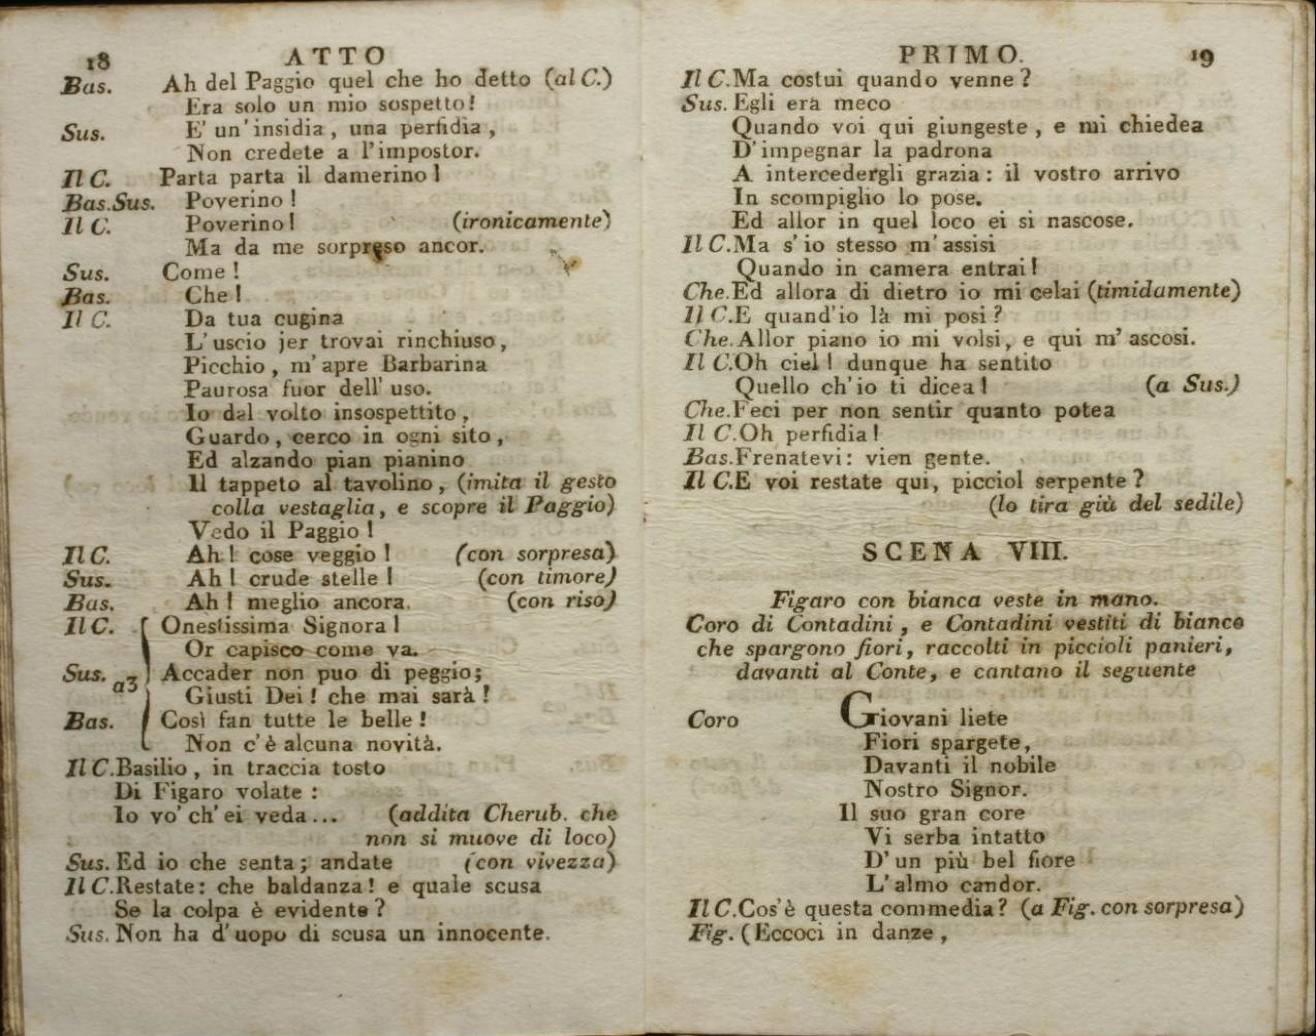 18 ATTO
Bas. Ah del Paggio quel che ho detto (al C.)
Era solo un mio sospetto!
Sus. E' un'insidia, una perfidia,
Non credete a l'impostor.
Il C. Parta parta il damerino!
Bas.Sus. Poverino!
Il C. Poverino! (ironicamente)
Ma da me sorpreso ancor.
Sus. Come!
Bas. Che!
Il C. Da tua cugina
L'uscio jer trovai rinchiuso,
Picchio, m'apre Barbarina
Paurosa fuor dell' uso.
Io dal volto insospettito,
Guardo, cerco in ogni sito,
Ed alzando pian pianino
Il tappeto al tavolino, (imita il gesto
colla vestaglia, e scopre il Paggio)
Vedo il Paggio!
Il C. Ah! cose veggio! (con sorpresa)
Sus. Ah! crude stelle! (con timore)
Bas. Ah! meglio ancora. (con riso)
Il C. Onestissima Signora!
Or capisco come va.
Sus. a3 Accader non puo di peggio;
Giusti Dei! che mai sarà!
Bas. Così fan tutte le belle!
Non c'è alcuna novità.
Il C.Basilio, in traccia tosto
Di Figaro volate:
Io vo' ch' ei veda... (addita Cherub. che
non si muove di loco)
Sus. Ed io che senta; andate (con vivezza)
Il C.Restate: che baldanza! e quale scusa
Se la colpa è evidente?
Sus. Non ha d'uopo di scusa un innocente.
PRIMO. 19
Il C.Ma costui quando venne?
Sus. Egli era meco
Quando voi qui giungeste, e mi chiedea
D'impegnar la padrona
A intercedergli grazia: il vostro arrivo
In scompiglio lo pose.
Ed allor in quel loco ei si nascose.
Il C.Ma s'io stesso m'assisi
Quando in camera entrai!
Che.Ed allora di dietro io mi celai (timidamente)
Il C.E quand'io là mi posi?
Che.Allor piano io mi volsi, e qui m'ascosi.
Il C.Oh ciel! dunque ha sentito
Quello ch'io ti dicea! (a Sus.)
Che.Feci per non sentir quanto potea
Il C.Oh perfidia!
Bas.Frenatevi: vien gente.
Il C.E voi restate qui, picciol serpente?
(lo tira giù del sedile)
SCENA VIII.
Figaro con bianca veste in mano.
Coro di Contadini, e Contadini vestiti di bianco
che spargono fiori, raccolti in piccioli panieri,
davanti al Conte, e cantano il seguente
Coro Giovani liete
Fiori spargete,
Davanti il nobile
Nostro Signor.
Il suo gran core
Vi serba intatto
D'un più bel fiore
L'almo candor.
Il C.Cos'è questa commedia? (a Fig. con sorpresa)
Fig. (Eccoci in danze,